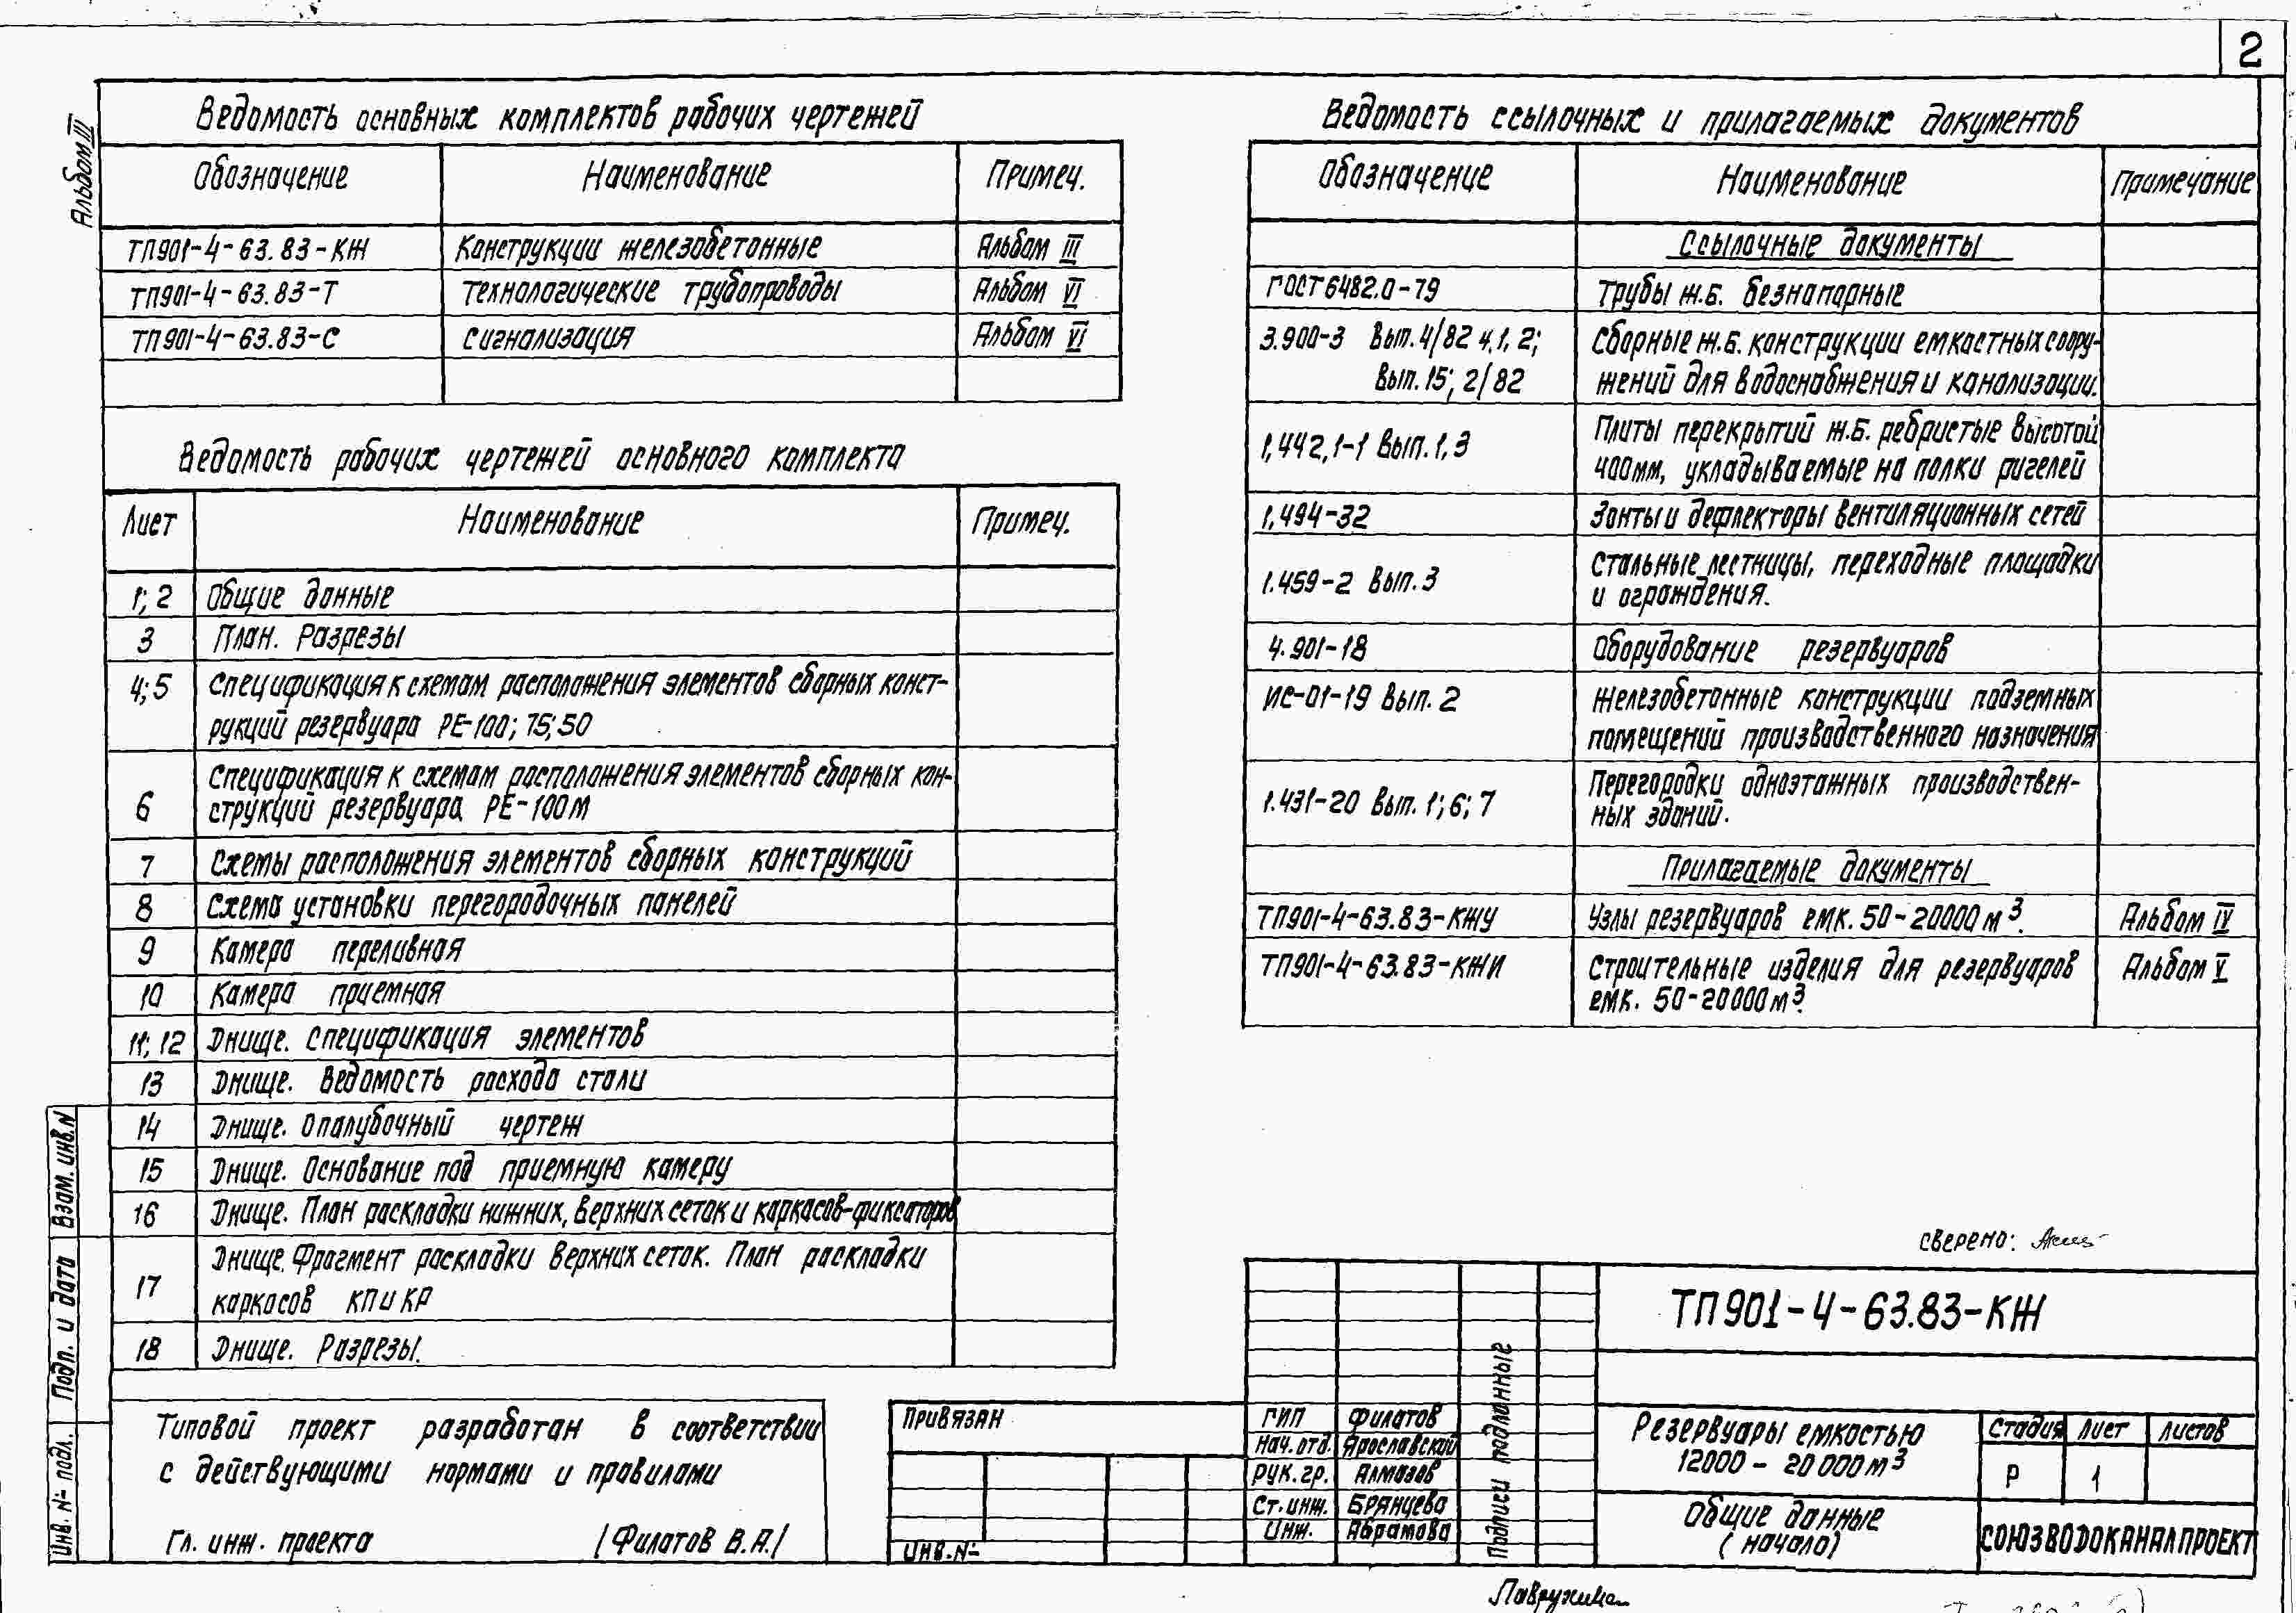 2
Альбом III
Ведомость основных комплектов рабочих чертежей
Обозначение Наименование Примеч.
ТП901-4-63.83-КЖ Конструкции железобетонные Альбом III
ТП901-4-63.83-Т Технологические трубопроводы Альбом VI
ТП901-4-63.83-С Сигнализация Альбом VI
Ведомость рабочих чертежей основного комплекта
Лист Наименование Примеч.
1; 2 Общие данные
3 План. Разрезы
4; 5 Спецификация к схемам расположения элементов сборных конст-
рукций резервуара РЕ-100; 75; 50
Спецификация к схемам расположения элементов сборных кон-
6 струкций резервуара РЕ-100м
7 Схемы расположения элементов сборных конструкций
8 Схема установки перегородочных панелей
9 Камера переливная
10 Камера приемная
11; 12 Днище. Спецификация элементов
13 Днище. Ведомость расхода стали
14 Днище. Опалубочный чертеж
15 Днище. Основание под приемную камеру
16 Днище. План раскладки нижних, верхних сеток и каркасов-фиксаторов
Днище. Фрагмент раскладки верхних сеток. План раскладки
17 каркасов КП и КР
18 Днище. Разрезы.
Ведомость ссылочных и прилагаемых документов
Обозначение Наименование Примечание
Ссылочные документы
ГОСТ 6482.0-79 Трубы ж.б. безнапорные
3.900-3 Вып. 4/82 ч.1, 2; Сборные ж.б. конструкции емкостных соору-
Вып. 15; 2/82 жений для водоснабжения и канализации.
1,442,1-1 Вып. 1,3 Плиты перекрытий ж.б. ребристые высотой
400мм, укладываемые на полки ригелей
1,494-32 Зонты и дефлекторы вентиляционных сетей
1.459-2 Вып. 3 Стальные лестницы, переходные площадки
и ограждения.
4.901-18 Оборудование резервуаров
ИС-01-19 Вып. 2 Железобетонные конструкции подземных
помещений производственного назначения
1.431-20 Вып. 1; 6; 7 Перегородки одноэтажных производствен-
ных зданий.
Прилагаемые документы
ТП901-4-63.83-КЖУ Узлы резервуаров емк. 50-20000 м³. Альбом IV
ТП901-4-63.83-КЖИ Строительные изделия для резервуаров Альбом V
емк. 50-20000м³
Взам. инв. N
Подп. и дата
Инв. № подл.
Типовой проект разработан в соответствии
с действующими нормами и правилами
Гл. инж. проекта /Филатов В.А./
Привязан
Инв. №
сверено:
ТП901-4-63.83-КЖ
ГИП Филатов
Нач. отд. Ярославский
Рук. гр. Алмазов
Ст. инж. Брянцева
Инж. Абрамова
Подписи подлинные
Резервуары емкостью
12000 - 20000 м³
Стадия Лист Листов
Р 1
Общие данные
(начало)
СОЮЗВОДОКАНАЛПРОЕКТ